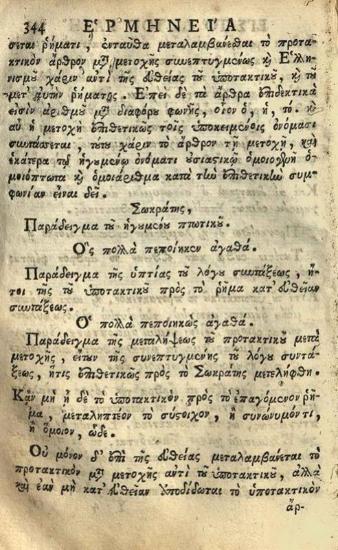 344 ΕΡΜΗΝΕΙΑ
σεται ῥήματι, ἐνταῦθα μεταλαμβάνεσθαι τὸ προτα-
κτικὸν ἄρθρον μετὰ μετοχῆς συνεπτυγμένως καὶ Ἑλλη-
νισμοῦ χάριν ἀντὶ τῆς εὐθείας τοῦ ὑποτακτικοῦ, καὶ τοῦ
μετ' αὐτὴν ῥήματος. Ἐπεὶ δὲ τὰ ἄρθρα ἐπιδεκτικά
εἰσιν ἀριθμοῦ μετὰ διαφόρου φωνῆς, οἷον ὁ, ἡ, τό. καὶ
αὖ ἡ μετοχὴ ἐπιθετικῶς τοῖς ὑποκειμένοις ὀνόμασι
συντάσσεται, τούτου χάριν τὸ ἄρθρον τῇ μετοχῇ, καὶ
ἑκάτερα τῷ ἡγουμένῳ ὀνόματι οὐσιαστικῷ ὁμοιογενῆ ὁ-
μοιόπτωτα καὶ ὁμοιάριθμα κατὰ τὴν ἐπιθετικὴν συμ-
φωνίαν εἶναι δεῖ.
Σωκράτης,
Παράδειγμα τοῦ ἡγουμένου πτωτικοῦ.
Ὃς πολλὰ πεποίηκεν ἀγαθά.
Παράδειγμα τῆς ὑπτίας τοῦ λόγου συντάξεως, ἤ-
τοι τῆς τοῦ ὑποτακτικοῦ πρὸς τὸ ῥῆμα κατ' εὐθεῖαν
συντάξεως.
Ὁ πολλὰ πεποιηκὼς ἀγαθά.
Παράδειγμα τῆς μεταλήψεως τοῦ προτακτικοῦ μετὰ
μετοχῆς, εἴτουν τῆς συνεπτυγμένης τοῦ λόγου συντά-
ξεως, ἥτις ἐπιθετικῶς πρὸς τὸ Σωκράτης μετελήφθη.
Κἂν μὴ ᾖ δὲ τὸ ὑποτακτικὸν πρὸς τὸ ἐπαγόμενον ῥῆ-
μα, μεταληπτέον τὸ σύστοιχον, ἢ συνώνυμόν τι,
ἢ ὅμοιον, ὧδε.
Οὐ μόνον δ' ἐπὶ τῆς εὐθείας μεταλαμβάνεται τὸ
προτακτικὸν μετὰ μετοχῆς ἀντὶ τοῦ ὑποτακτικοῦ, ἀλλὰ
καὶ ἐὰν μὴ κατ' εὐθεῖαν ὑποδίδωται τὸ ὑποτακτικὸν
ἄρ-